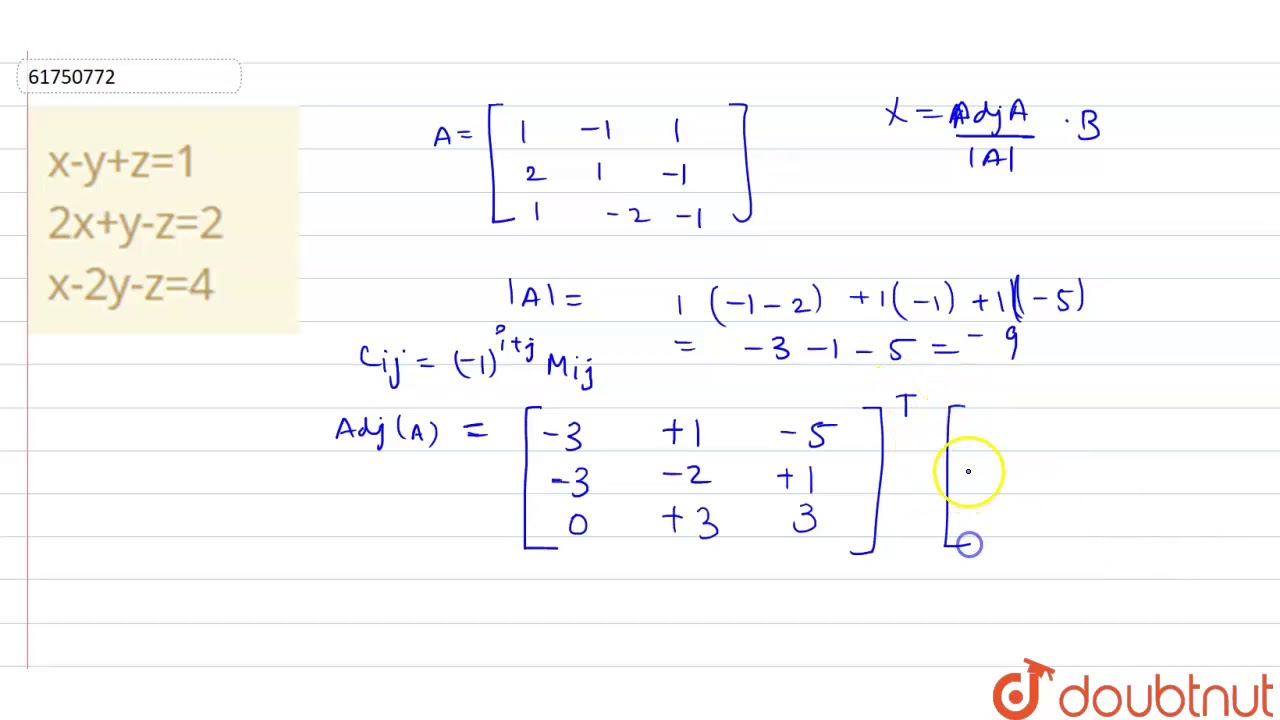 61750772
x-y+z=1
2x+y-z=2
x-2y-z=4
A = [ 1 -1 1
2 1 -1
1 -2 -1 ]
X = AdjA / |A| · B
|A| = 1 (-1-2) +1(-1) +1(-5)
= -3 -1 -5 = -9
Cij = (-1)^i+j Mij
Adj(A) = [ -3 +1 -5
-3 -2 +1
0 +3 3 ]^T [
doubtnut